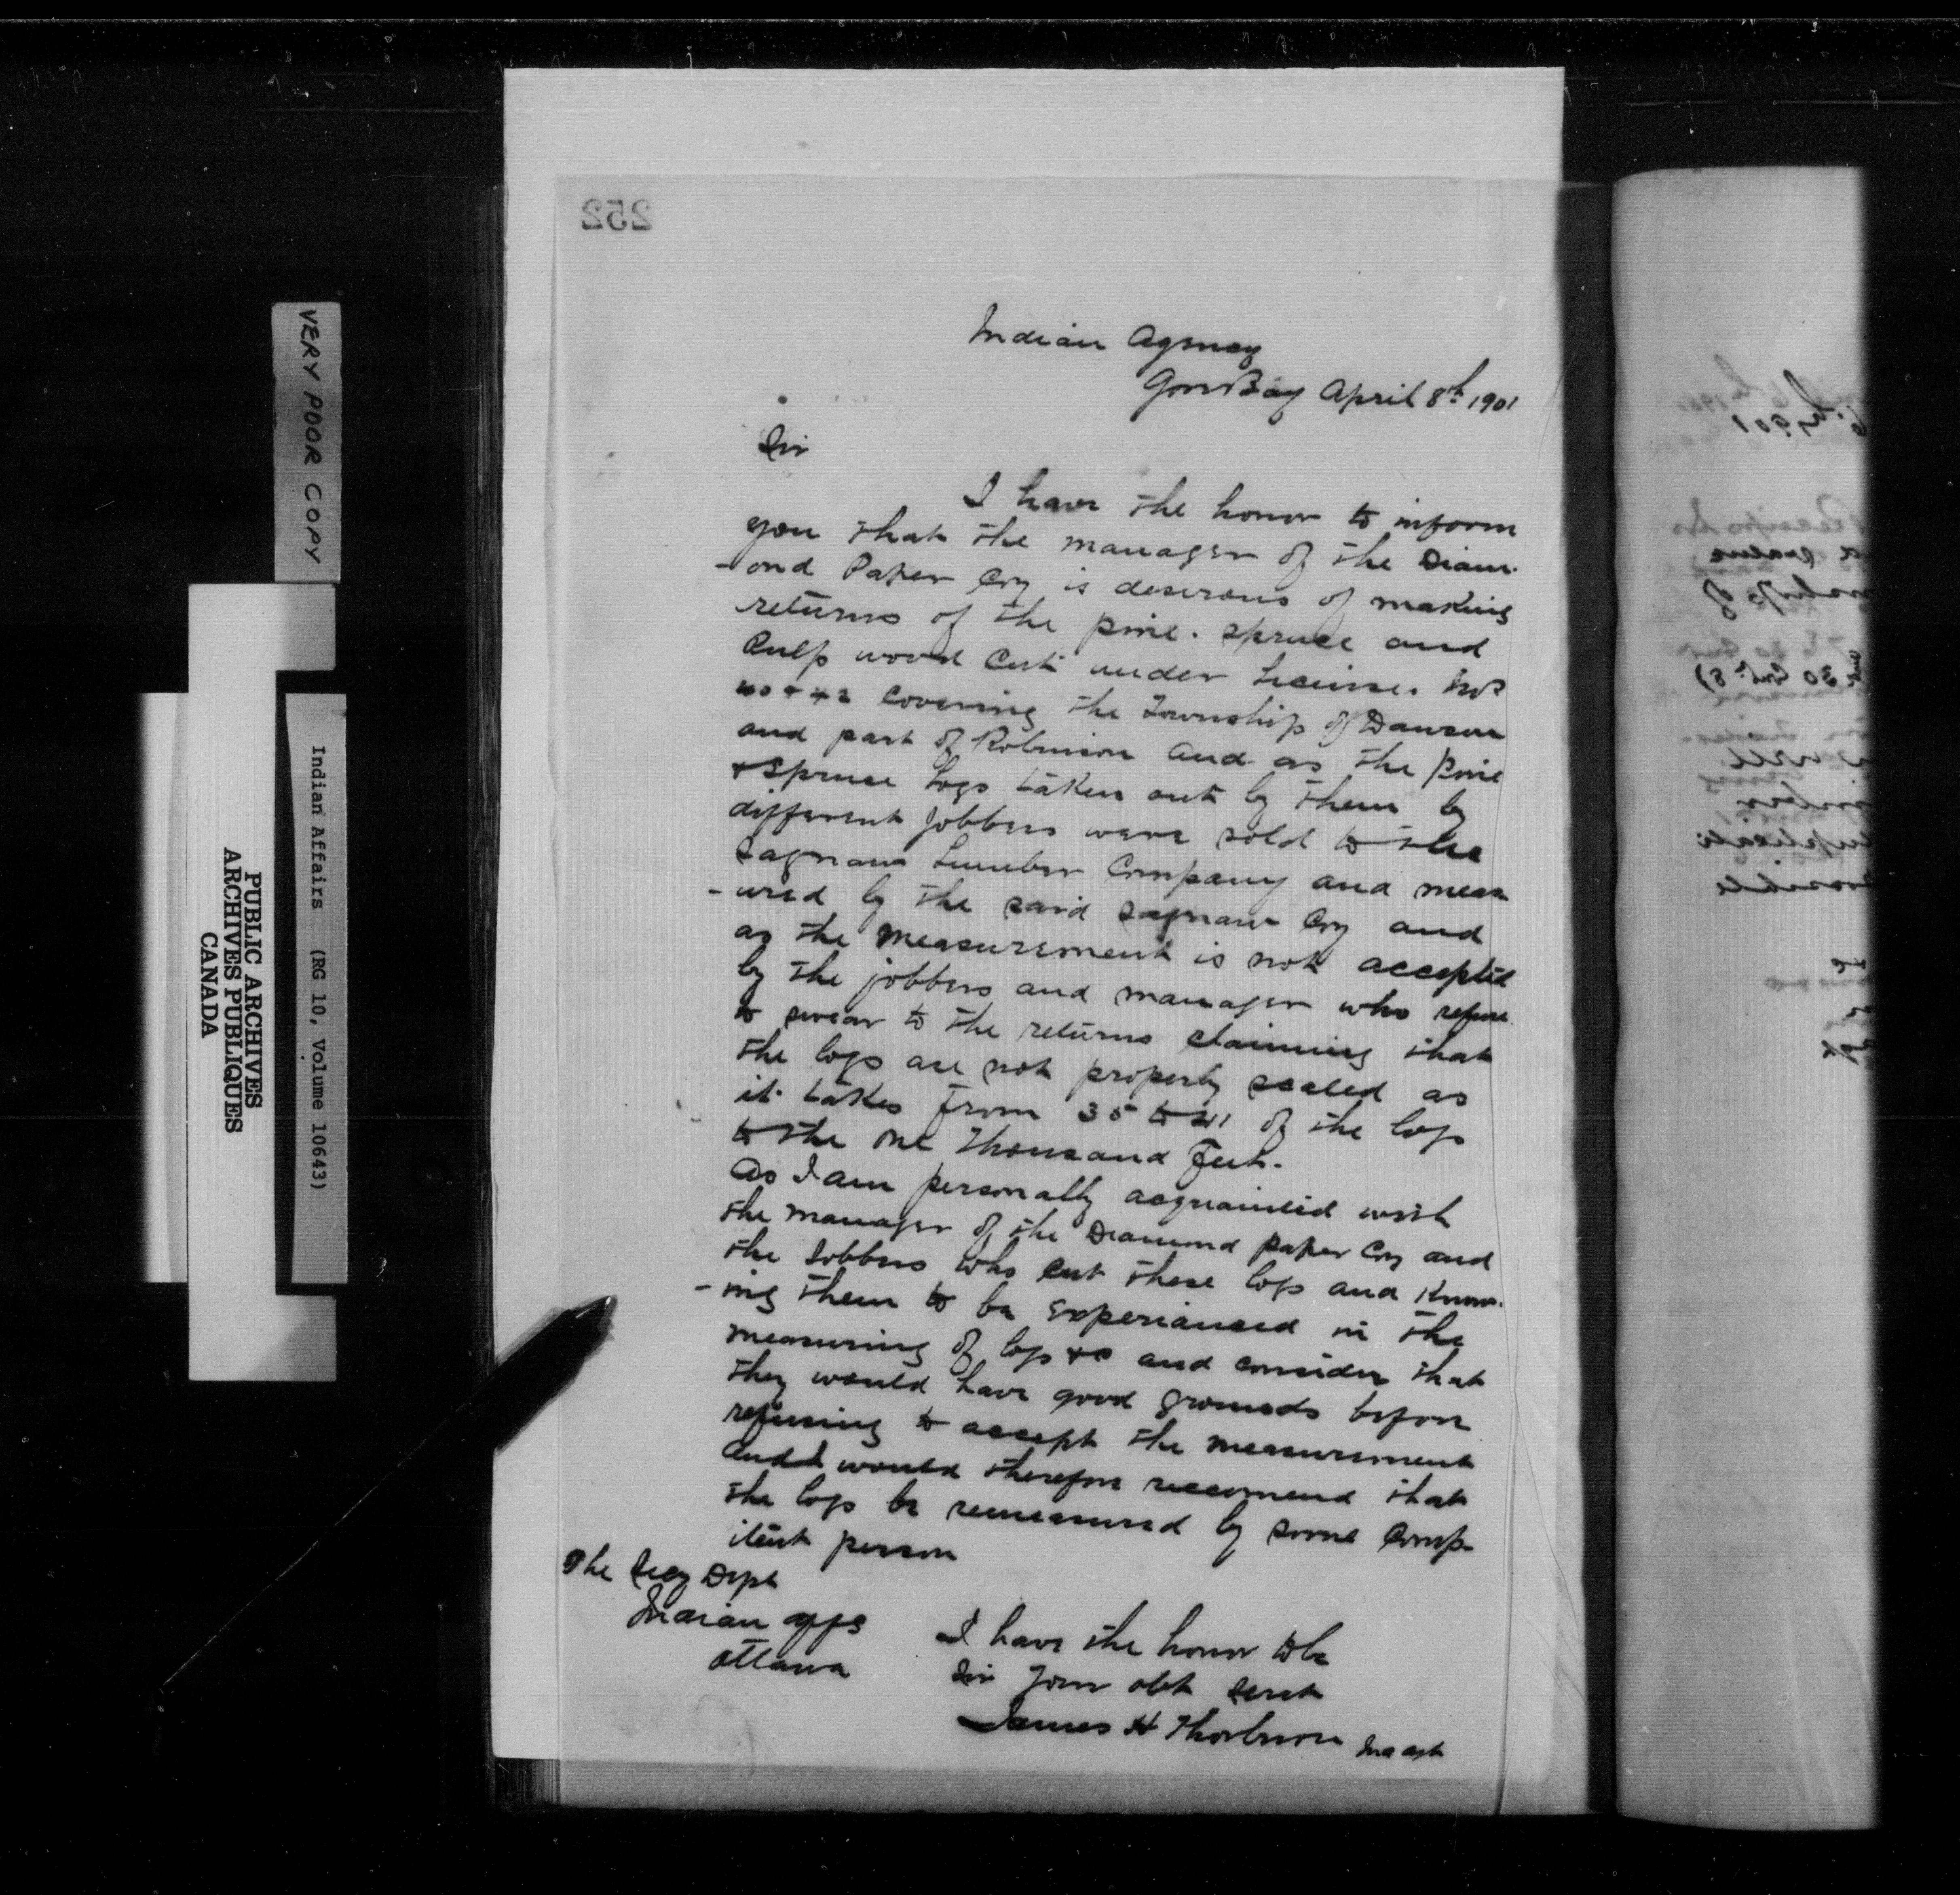 252
Indian Agency
Gore Bay April 8th 1901
Sir
I have the honor to inform
you that the manager of the Diam-
-ond Paper Coy is desirous of making
returns of the pine. spruce and
Pulp wood Cut under License Nos
40 & 42 Covering the Township of Dawson
and part of Robinson and as the pine
& Spruce Logs taken out by them by
different Jobbers were sold to the
Saginaw Lumber Company and meas
-ured by the said Saginaw Coy and
as the measurement is not accepted
by the jobbers and manager who refuse
to swear to the returns claiming that
the logs are not properly scaled as
it takes from 35 to 41 of the logs
to the one Thousand Feet.
As I am personally acquainted with
the manager of the Diamond paper Coy and
the Jobbers who cut these logs and Know-
-ing them to be experianced in the
measuring of logs &c and consider that
they would have good grounds before
refusing to accept the measurement
and I would therefore reccomend that
the logs be remeasured by some Comp-
itent person
The Secy Dept
Indian affs
Ottawa
I have the honor to be
Sir Your obt Servt
James H Thorburn Ind agt
VERY POOR COPY
PUBLIC ARCHIVES
ARCHIVES PUBLIQUES
CANADA
Indian Affairs (RG 10, Volume 10643)